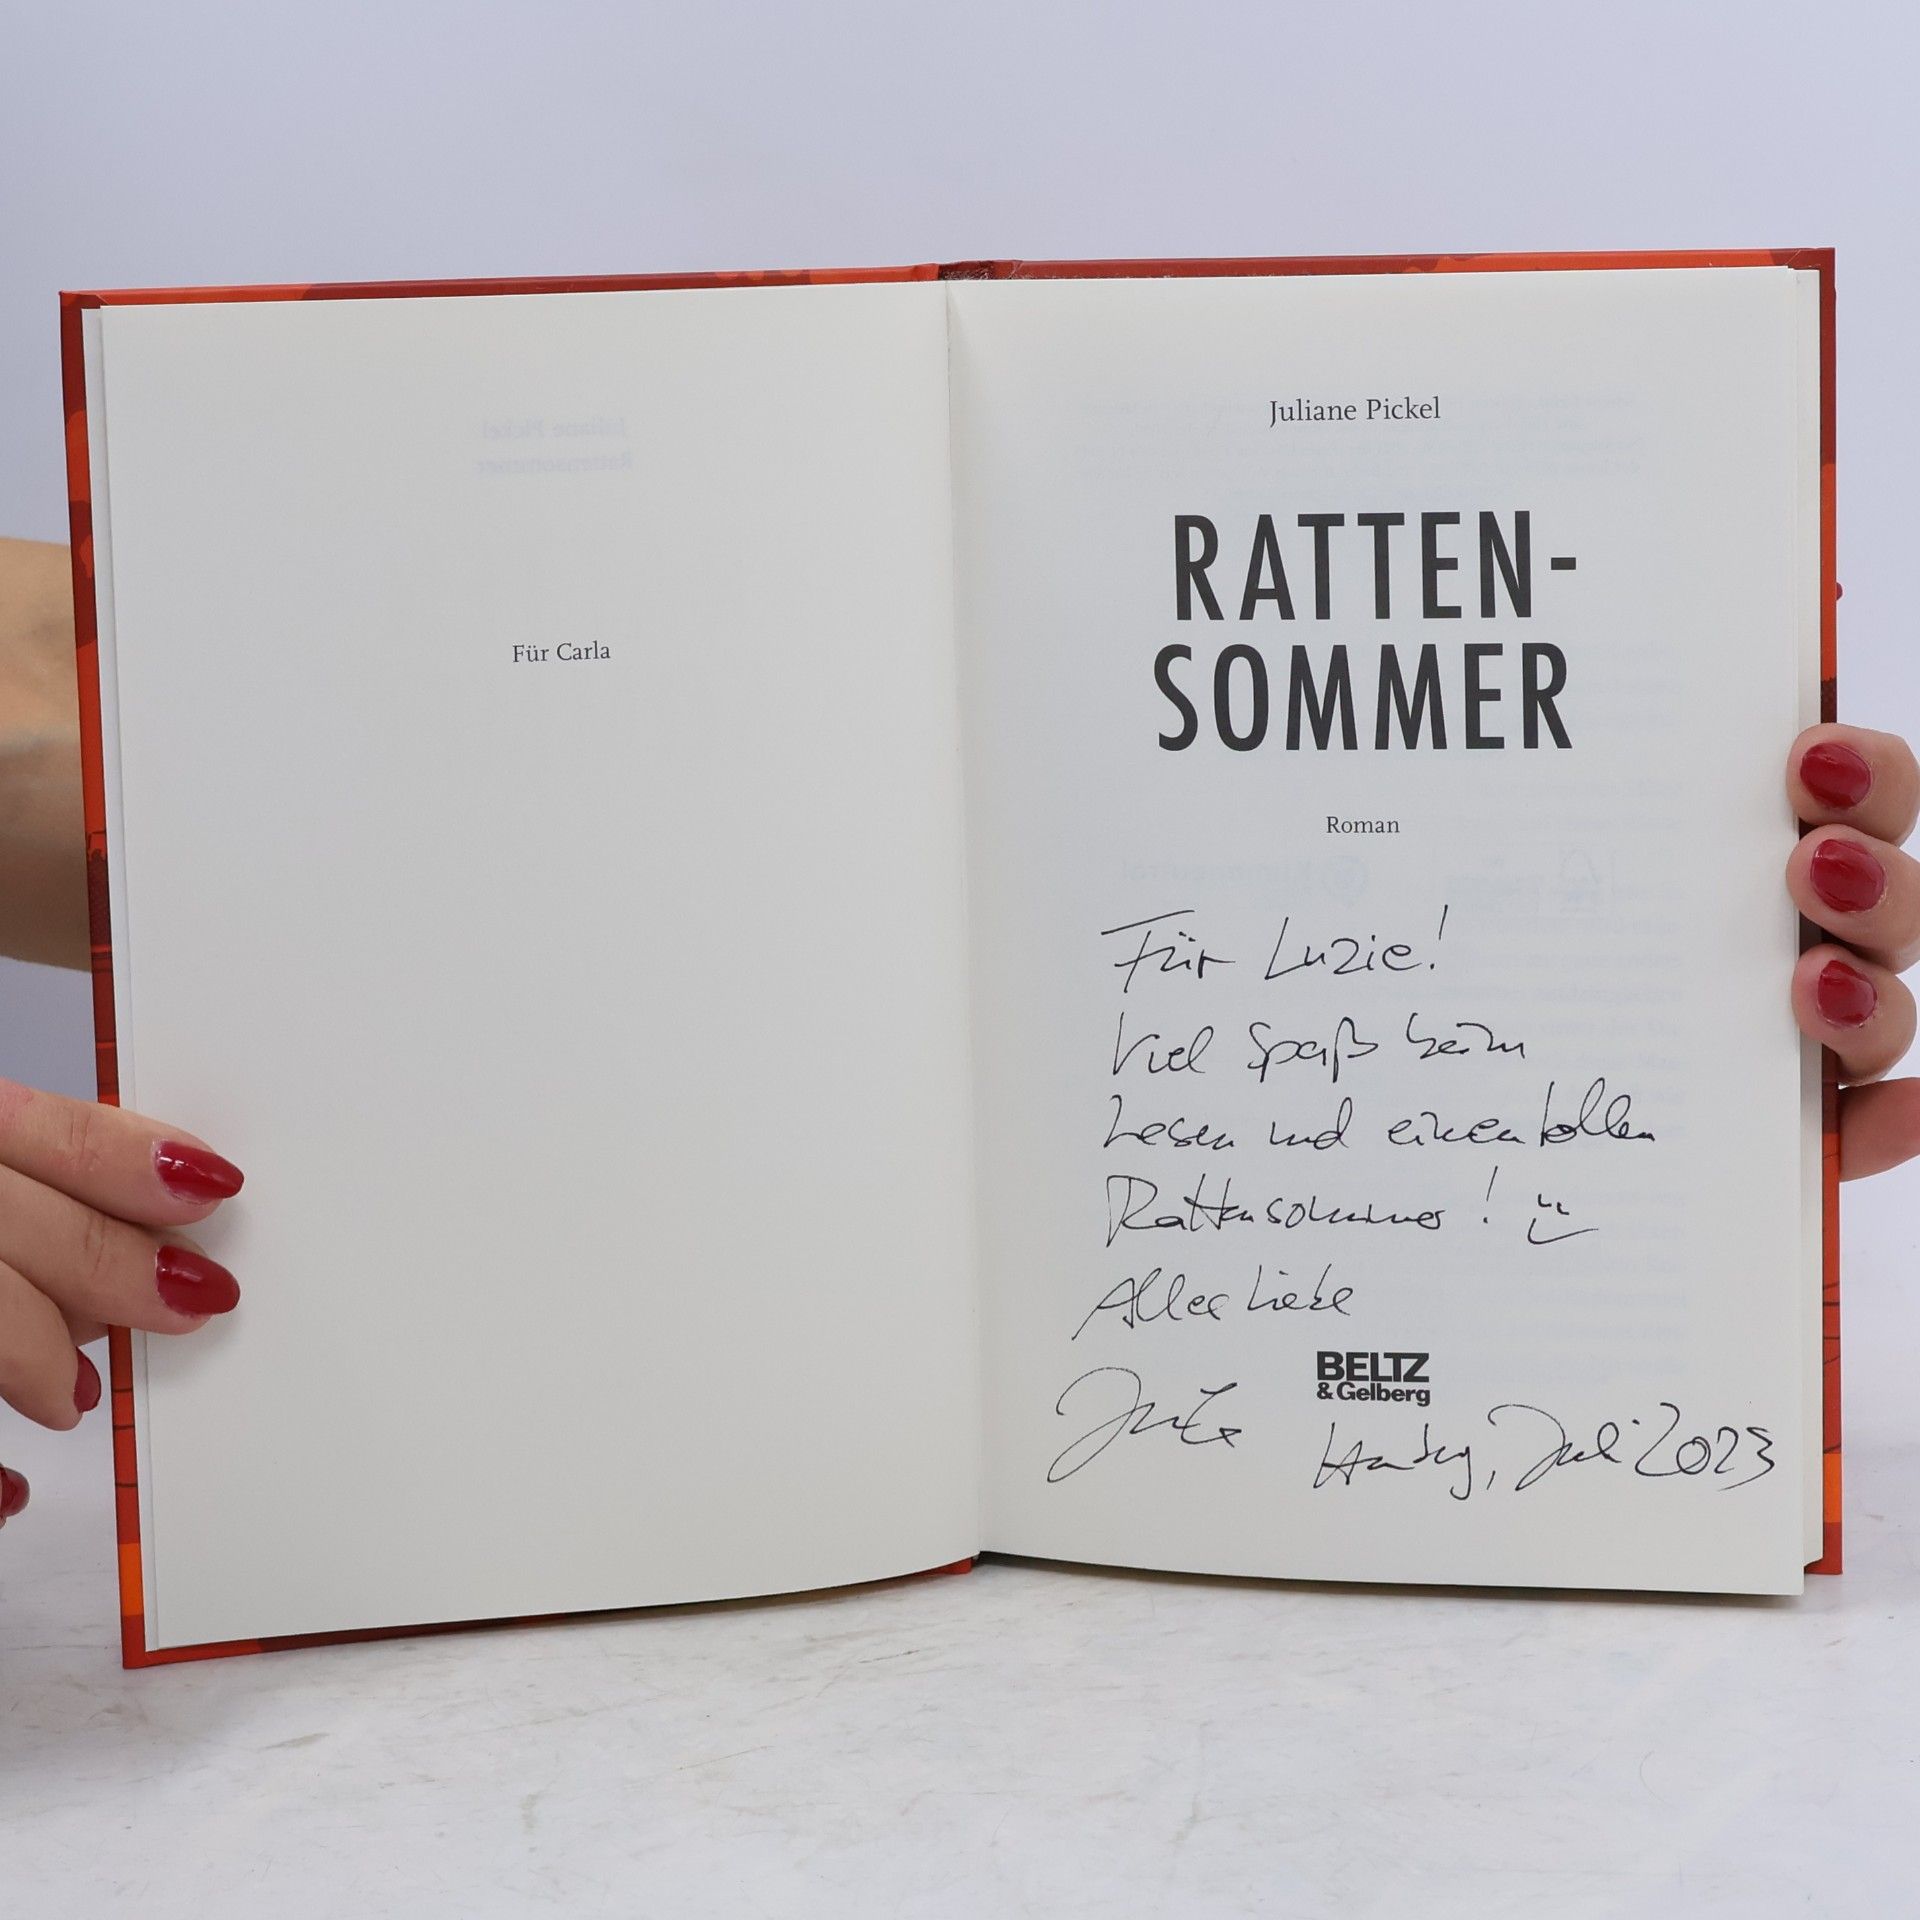 Für Carla
Juliane Pickel
RATTEN-
SOMMER
Roman
Für Luzie!
Viel Spaß beim
Lesen und einen tollen
Rattensommer! Ü
Alles Liebe
BELTZ
& Gelberg
Hamburg, Juli 2023